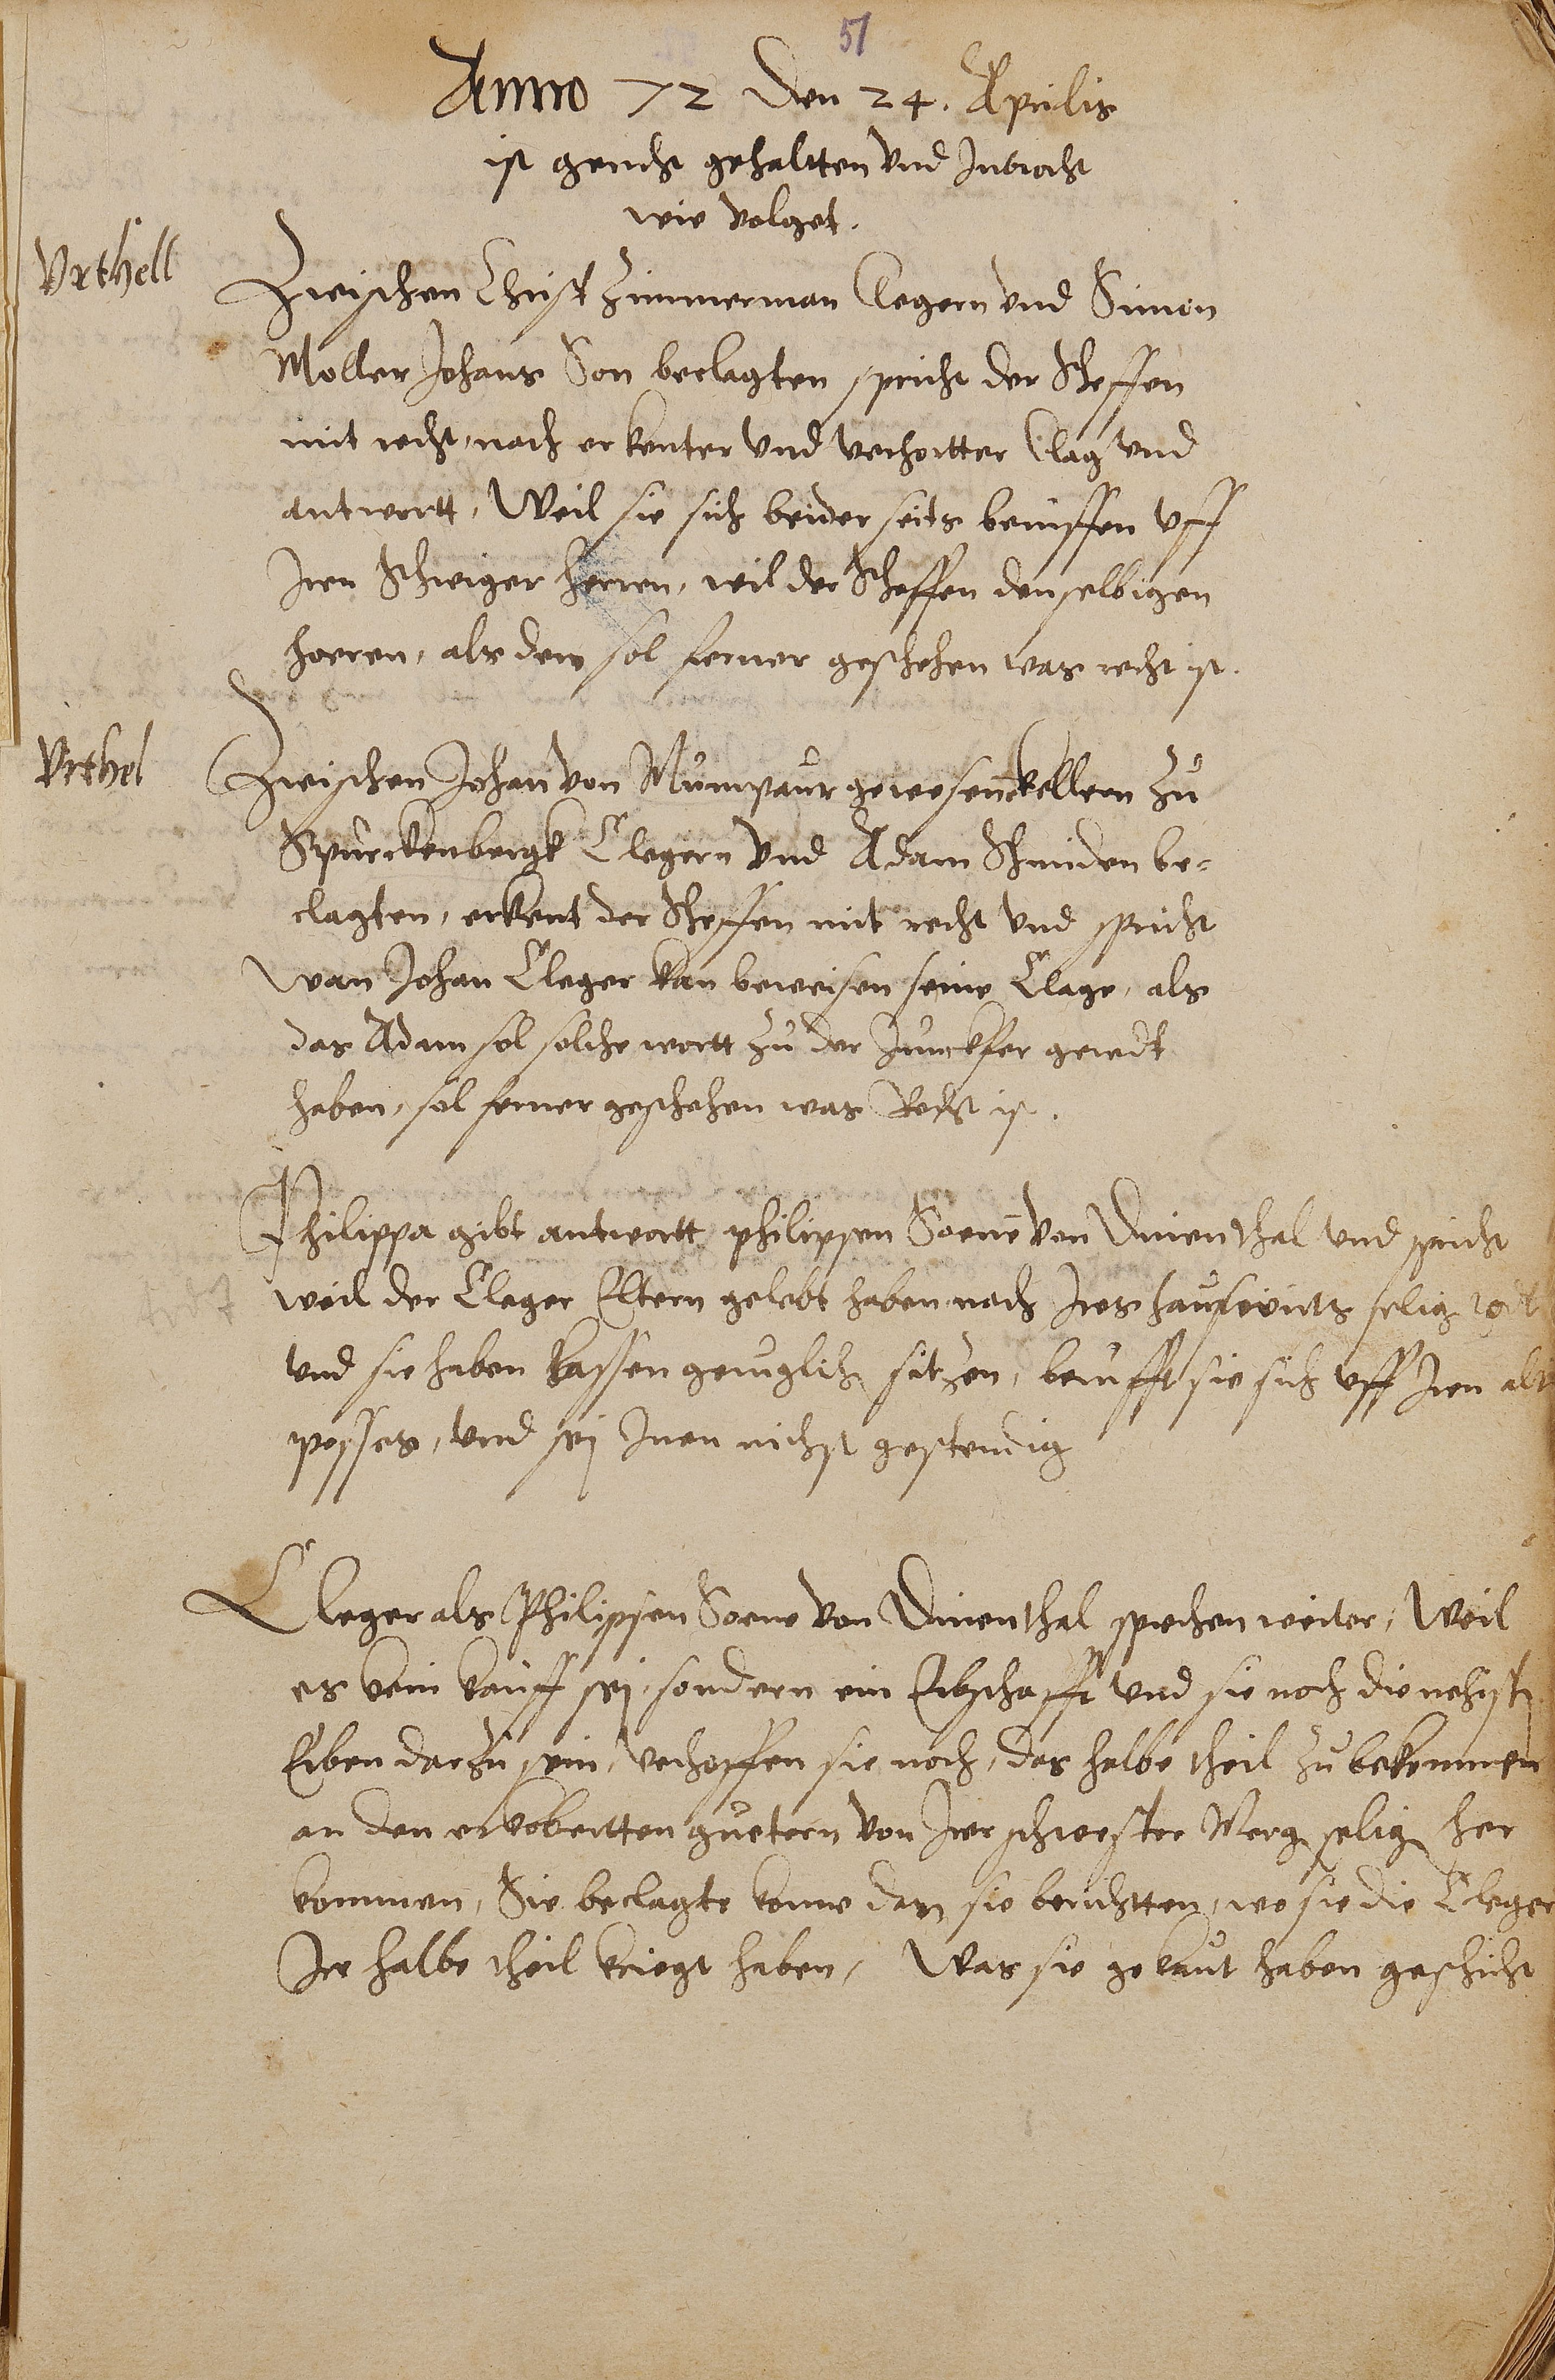 51
Anno 72 den 24. Aprilis
ist gericht gehaltten vnd Inbracht
wie volget.
Vrthell
Zwischen Christ Zimmerman Clegern vnd Simon
Moller Johans Son beclagten spricht der Scheffen
mit recht, nach erkenter vnd verhortter Clag vnd
antwortt, Weil sie sich beider seits beruffen vff
Iren Schwiger herren, wil der Scheffen denselbigen
hoeren, als dem sol ferner geschehen was recht ist.
Vrthel
Zwischen Johan von Munthaur gewesenē kellern zu
Spurckenbergk Clegern vnd Adam Schmiden be-
clagten, erkent der Scheffen mit recht vnd spricht
wan Johan Cleger kan beweisen seine Clage, als
das Adam sol solche wortt zu der Junckfer geredt
haben, sol ferner geschehen was Recht ist.
Philippa gibt antwortt philipsen Soenē von Duienthal vnd spricht
weil der Cleger Eltern gelebt haben nach Ires hauswirts selig
vnd sie haben lassen geruglich sitzen, berufft sie sich vff Iren alt
posses, vnd sej Inen nichst gestendig
Cleger als Philipsen Soene von Duienthal sprechen weiter, Weil
es kein kauff sej, sondern ein Erbschafft vnd sie noch die nehist
Erben darzu sein, verhoffen sie noch, das halbe theil zu bekommen
an den erobertten guetern von Irer schwester Merg selig her
kommen, Die beclagte konne dan sie berichtten, wo sie die Cleger
Ire halbe theil kriegt haben, Was sie gebaut haben geschicht